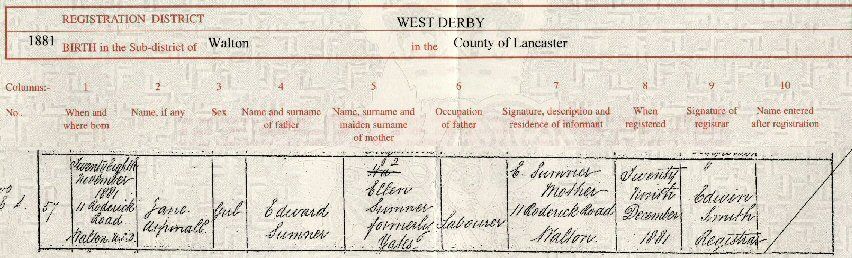 REGISTRATION DISTRICT WEST DERBY
1881 BIRTH in the Sub-district of Walton in the County of Lancaster
Columns:- 1 2 3 4 5 6 7 8 9 10
No. When and where born Name, if any Sex Name and surname of father Name, surname and maiden surname of mother Occupation of father Signature, description and residence of informant When registered Signature of registrar Name entered after registration
57
Twenty eighth
November
1881
11 Roderick
Road
Walton U.S.D.
Jane
Aspinall
Girl
Edward
Sumner
Ellen
Sumner
formerly
Yates
Labourer
E. Sumner
Mother
11 Roderick Road
Walton
Twenty
ninth
December
1881
Edwin
Smith
Registrar